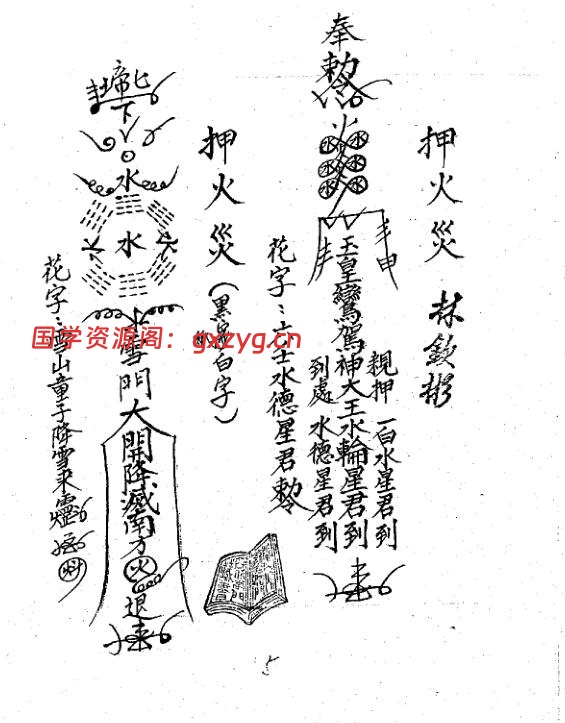 押火災 林欽彬
奉
勅令
火
水水
水水
水水
玉皇鸞駕
親押 一白水星君到
神大王水輪星君到
到處 水德星君到
花字：
水德星君勅令
押火災（黑
白字）
下
水
水
雪門大開降滅南方火退
花字：雪山童子降雪來
国学资源阁：gxzyg.cn
5